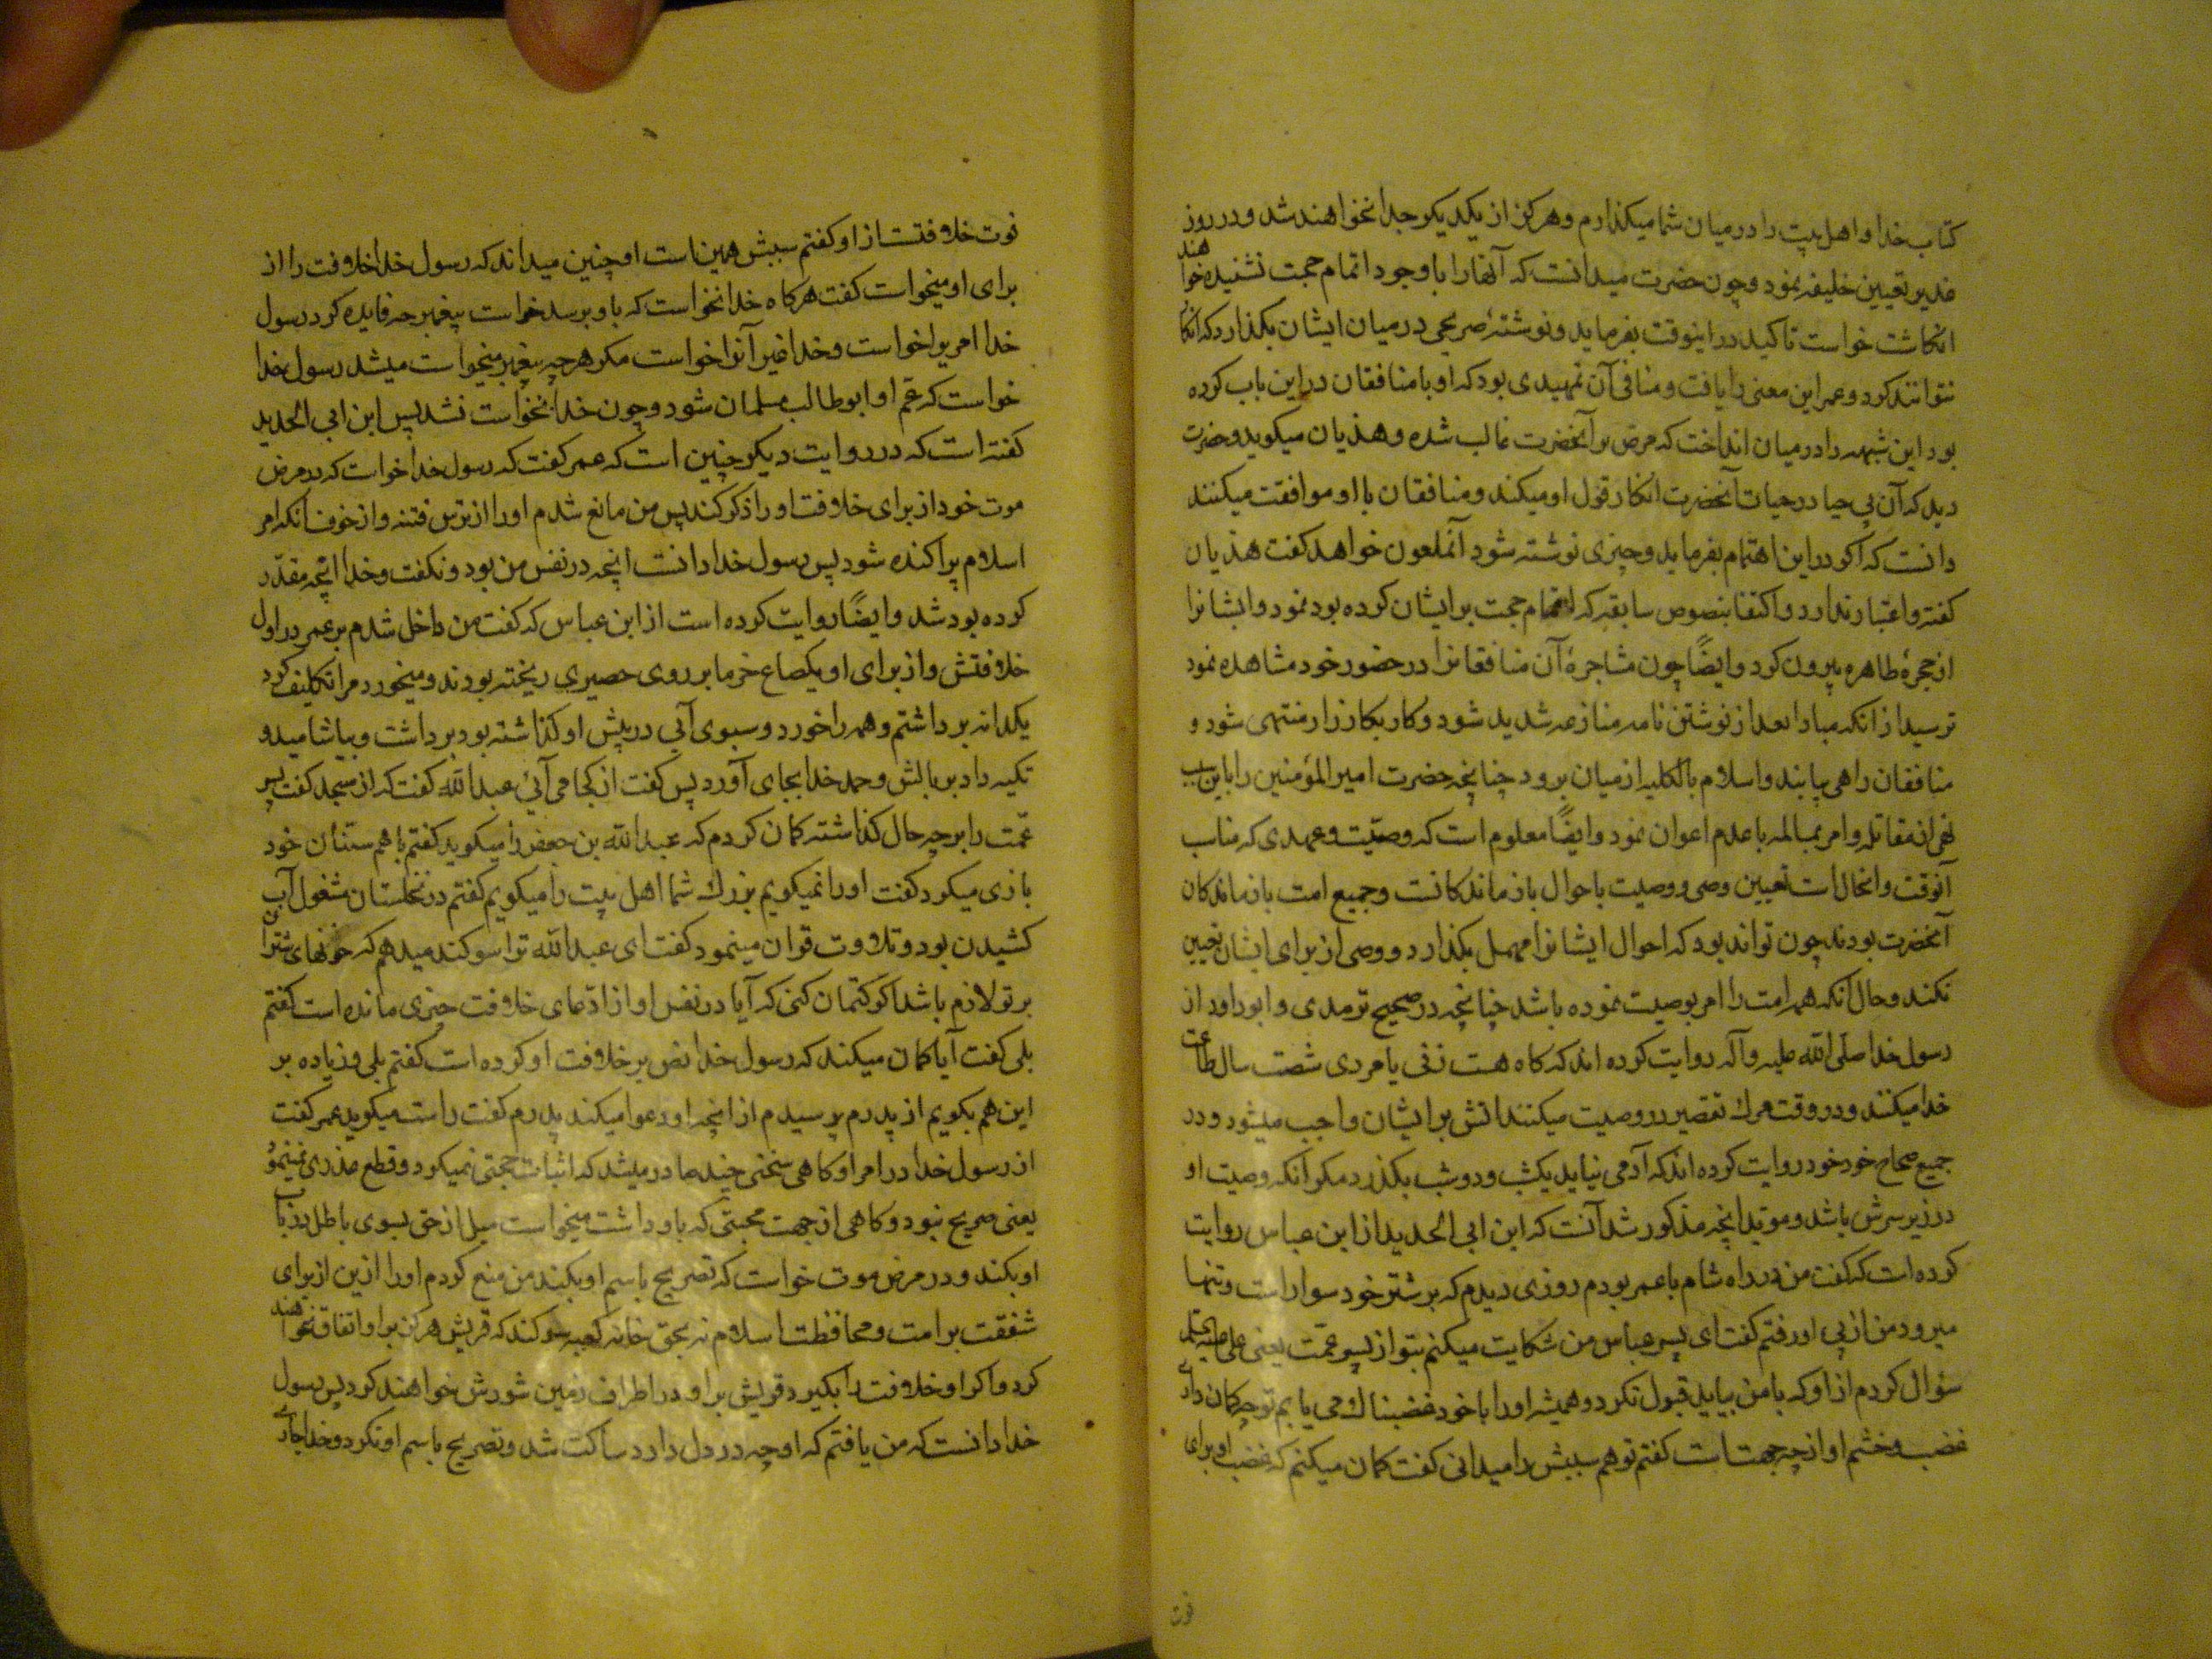 کتاب خدا و اهل بیت را در میان شما میکذارم و هرکز از یکدیکر جدا نخواهند شد و در روز
غدیر تعیین خلیفه نمود و چون حضرت میدانست که آنها را با وجود اتمام حجت نشنیده خواهند
انکاشت خواست تاکید در اینوقت بفرماید و نوشتهٔ صریحی در میان ایشان بکذارد که انکار
نتوانند کرد و عمر این معنی را یافت و منافی آن تمهیدی بود که او با منافقان در این باب کرده
بود این شبهه را در میان انداخت که مرض بر آنحضرت غالب شده و هذیان میکوید و حضرت
دید که آن بی حیا در حیات آنحضرت انکار قول او میکند و منافقان با او موافقت میکنند
دانست که اکر در این اهتمام بفرماید و چیزی نوشته شود آنملعون خواهد کفت هذیان
کفته و اعتبار ندارد و اکتفا بنصوص سابقه که اتمام حجت بر ایشان کرده بود نمود و ایشانرا
از حجرهٔ طاهره بیرون کرد و ایضًا چون مشاجرهٔ آن منافقانرا در حضور خود مشاهده نمود
ترسید از انکه مبادا بعد از نوشتن نامه منازعه شدید شود و کار بکارزار منتهی شود و
منافقان راهی یابند و اسلام بالکلیه از میان برود چنانچه حضرت امیر المؤمنین را باین سبب
نهی از مقاتله و امر بمسالمه با عدم اعوان نمود و ایضًا معلوم است که وصیّت و عهدی که مناسب
آنوقت و انحال است تعیین وصی و وصیت باحوال بازماندکانست و جمیع امت بازماندکان
آنحضرت بودند چون تواند بود که احوال ایشانرا مهمل بکذارد و وصی از برای ایشان تعیین
نکند و حال آنکه همه امت را امر بوصیت نموده باشد چنانچه در صحیح ترمدی و ابو داود از
رسول خدا صلّی الله علیه و آله روایت کرده اند که کاه هست زنی یا مردی شصت سال طاعت
خدا میکنند و در وقت مرك تقصیر در وصیت میکنند اتش بر ایشان واجب میشود و در
جمیع صحاح خود خود روایت کرده اند که آدمی نیاید یکشب و دو شب بکذرد مکر آنکه وصیت او
در زیر سرش باشد و موید انچه مذکور شد آنست که ابن ابی الحدید از ابن عباس روایت
کرده است که کفت من در راه شام با عمر بودم روزی دیدم که بر شتر خود سوار است و تنها
میرود من از پی او رفتم کفت ای پسر عباس من شکایت میکنم بتو از پسر عمّت یعنی علی علیه السلم
سؤال کردم از او که با من بیاید قبول نکرد و همیشه او را با خود غضبناك می یابم تو چه کمان داری
غضب و خشم او از چه جهت است کفتم تو هم سببش را میدانی کفت کمان میکنم که غضب او برای
فوت
فوت خلافتست از او کفتم سببش همین است او چنین میداند که رسول خدا خلافت را از
برای او میخواست کفت هرکاه خدا نخواست که باو برسد خواست پیغمبر چه فایده کرد رسول
خدا امریرا خواست و خدا غیر آنرا خواست مکر هر چه پیغمبر میخواست میشد رسول خدا
خواست که عمّ او ابو طالب مسلمان شود و چون خدا نخواست نشد پس ابن ابی الحدید
کفته است که در روایت دیکر چنین است که عمر کفت که رسول خدا خواست که در مرض
موت خود از برای خلافت او را ذکر کند پس من مانع شدم او را از ترس فتنه و از خوف آنکه امر
اسلام پراکنده شود پس رسول خدا دانست انچه در نفس من بود و نکفت و خدا انچه مقدّر
کرده بود شد و ایضًا روایت کرده است از ابن عباس که کفت من داخل شدم بر عمر در اول
خلافتش و از برای او یکصاع خرما بر روی حصیری ریخته بودند و میخورد مرا تکلیف کرد
یکدانه برداشتم و همه را خورد و سبوی آبی در پیش او کذاشته بود برداشت و بیاشامید و
تکیه داد بر بالش و حمد خدا بجای آورد پس کفت از کجا می آئی عبد الله کفت که از مسجد کفت پسر
عمّت را بر چه حال کذاشته کمان کردم که عبد الله بن جعفر را میکوید کفتم با هم سنّان خود
بازی میکرد کفت او را نمیکویم بزرك شما اهل بیت را میکویم کفتم در نخلستان مشغول آب
کشیدن بود و تلاوت قران مینمود کفت ای عبد الله ترا سوکند میدهم که خونهای شتران
بر تو لازم باشد اکر کتمان کنی که آیا در نفس او از ادّعای خلافت چیزی مانده است کفتم
بلی کفت آیا کمان میکند که رسول خدا نص بر خلافت او کرده است کفتم بلی و زیاده بر
این هم بکویم از پدرم پرسیدم از انچه او دعوا میکند پدرم کفت راست میکوید عمر کفت
از رسول خدا در امر او کاهی سخنی چند صادر میشد که اثبات حجتی نمیکرد و قطع عذری نمینمود
یعنی صریح نبود و کاهی از جهت محبتی که باو داشت میخواست میل از حق بسوی باطل در باب
او بکند و در مرض موت خواست که تصریح باسم او بکند من منع کردم او را ازین از برای
شفقت بر امت و محافظت اسلام نه بحق خانه کعبه سوکند که قریش هرکز بر او اتفاق نخواهند
کرد و اکر او خلافت را بکیرد قریش بر او در اطراف زمین شورش خواهند کرد پس رسول
خدا دانست که من یافتم که او چه در دل دارد ساکت شد و تصریح باسم او نکرد و خدا جاری